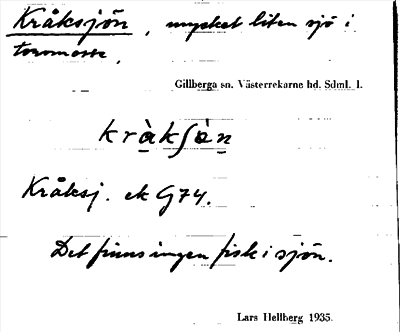 Kråksjön, mycket liten sjö i
torvmosse,
Gillberga sn. Västerrekarne hd. Sdml. l.
kràkʃὰn
Kråksj. ek G74.
Det finns ingen fisk i sjön.
Lars Hellberg 1935.